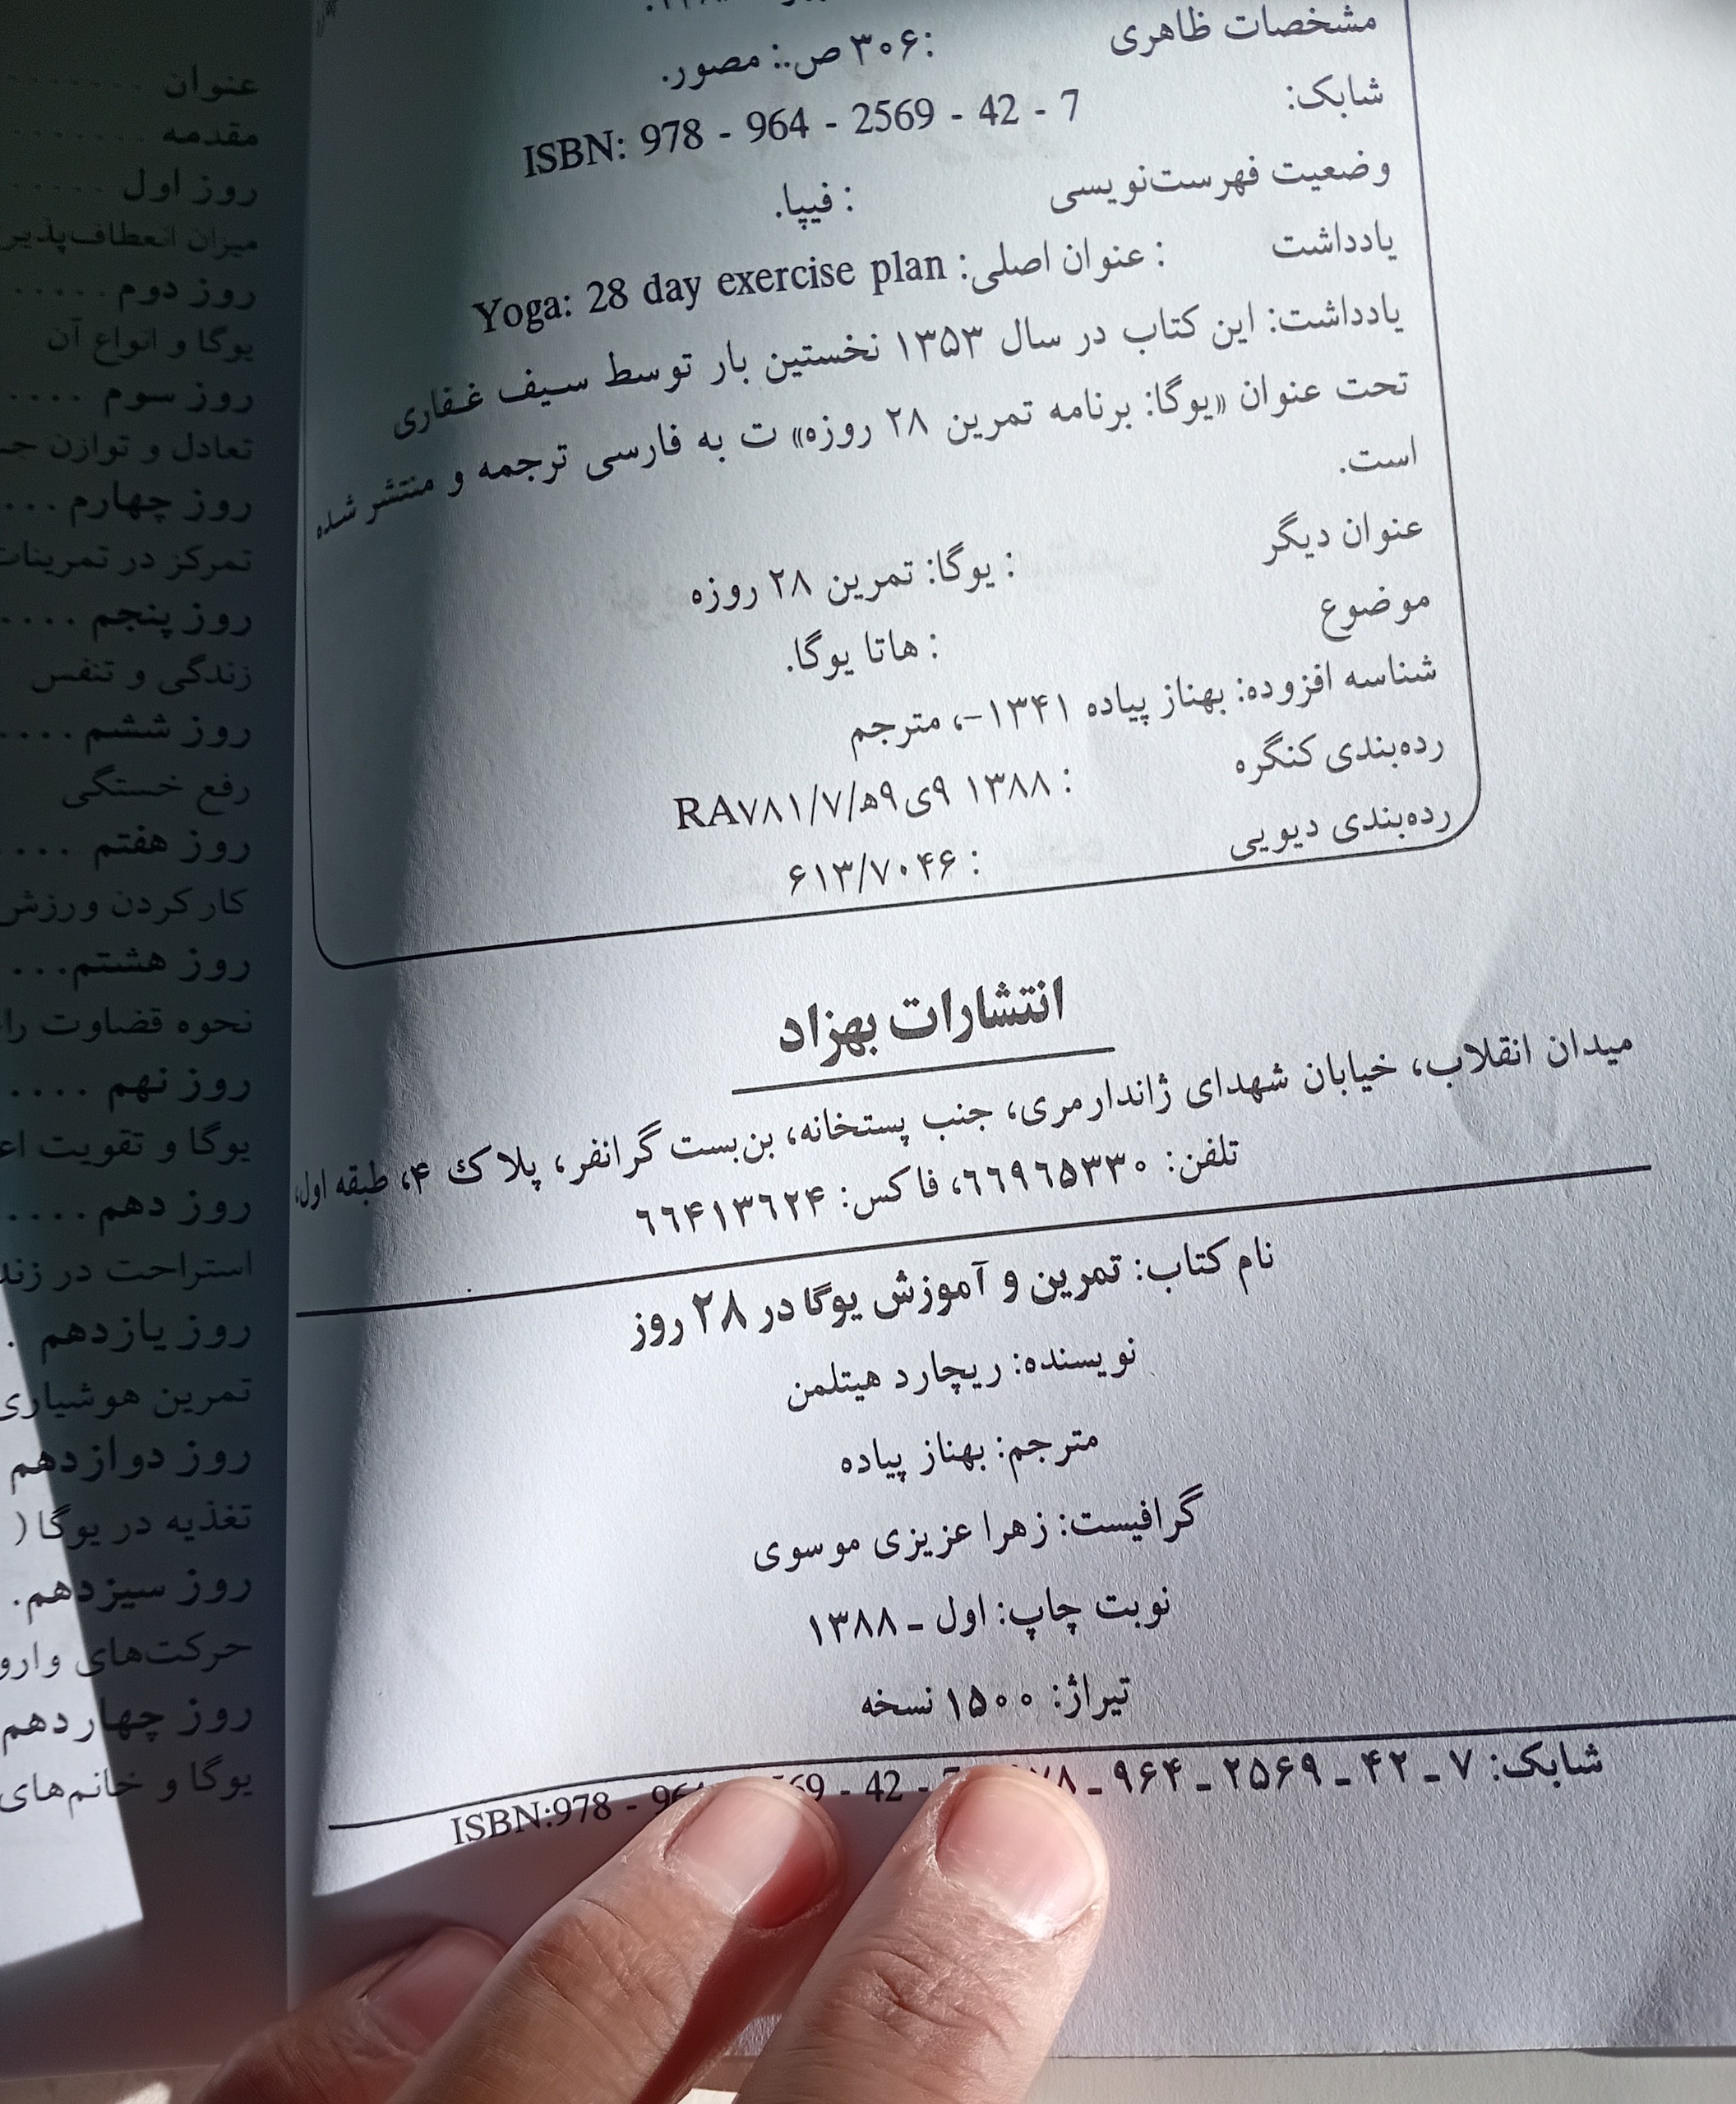 مشخصات ظاهری : ۳۰۶ ص.: مصور.
شابک: ISBN: 978 - 964 - 2569 - 42 - 7
وضعیت فهرست‌نویسی : فیپا.
یادداشت : عنوان اصلی: Yoga: 28 day exercise plan
یادداشت: این کتاب در سال ۱۳۵۳ نخستین بار توسط سیف غفاری
تحت عنوان «یوگا: برنامه تمرین ۲۸ روزه» ت به فارسی ترجمه و منتشر شده
است.
عنوان دیگر : یوگا: تمرین ۲۸ روزه
موضوع : هاتا یوگا.
شناسه افزوده: بهناز پیاده ۱۳۴۱-، مترجم
رده‌بندی کنگره : ۱۳۸۸ ۹ی۹ه‍/RA۷۸۱/۷
رده‌بندی دیویی : ۶۱۳/۷۰۴۶
انتشارات بهزاد
میدان انقلاب، خیابان شهدای ژاندارمری، جنب پستخانه، بن‌بست گرانفر، پلاک ۴، طبقه اول،
تلفن: ۶۶۹۶۵۳۳۰، فاکس: ۶۶۴۱۳۶۲۴
نام کتاب: تمرین و آموزش یوگا در ۲۸ روز
نویسنده: ریچارد هیتلمن
مترجم: بهناز پیاده
گرافیست: زهرا عزیزی موسوی
نوبت چاپ: اول ـ ۱۳۸۸
تیراژ: ۱۵۰۰ نسخه
شابک: ۷ ـ ۴۲ ـ ۲۵۶۹ ـ ۹۶۴ ـ
ISBN:978 - 96 69 - 42 -
عنوان ........
مقدمه ........
روز اول .....
میزان انعطاف‌پذیر
روز دوم .....
یوگا و انواع آن
روز سوم ....
تعادل و توازن
روز چهارم ...
تمرکز در تمرینات
روز پنجم ....
زندگی و تنفس
روز ششم ....
رفع خستگی
روز هفتم ....
کار کردن ورزش
روز هشتم...
نحوه قضاوت را
روز نهم ....
یوگا و تقویت اع
روز دهم ....
استراحت در زند
روز یازدهم .
تمرین هوشیاری
روز دوازدهم
تغذیه در یوگا (
روز سیزدهم.
حرکت‌های وارو
روز چهاردهم
یوگا و خانم‌های